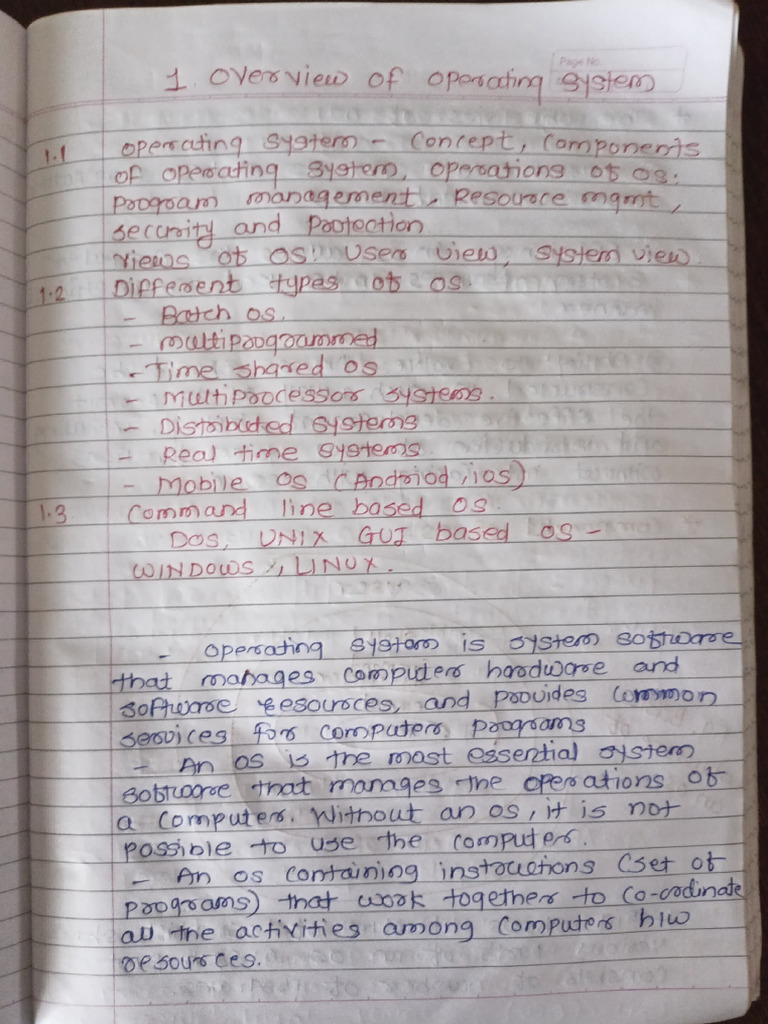 Page No.
1. Overview of operating system
1.1 operating system - Concept, Components
of operating system, operations of OS:
program management, Resource mgmt,
security and Protection
Views of OS: User view, System view.
1.2 Different types of OS.
- Batch OS.
- multiprogrammed
- Time shared OS
- Multiprocessor systems.
- Distributed systems
- Real time systems.
- Mobile OS (Andriod, ios)
1.3 Command line based OS.
DOS, UNIX GUI based OS -
WINDOWS, LINUX.
- operating system is system software
that manages computer hardware and
software resources, and provides common
services for computer programs
- An OS is the most essential system
software that manages the operations of
a computer. Without an OS, it is not
possible to use the computer.
- An OS containing instructions (set of
programs) that work together to co-ordinate
all the activities among computer h/w
resources.